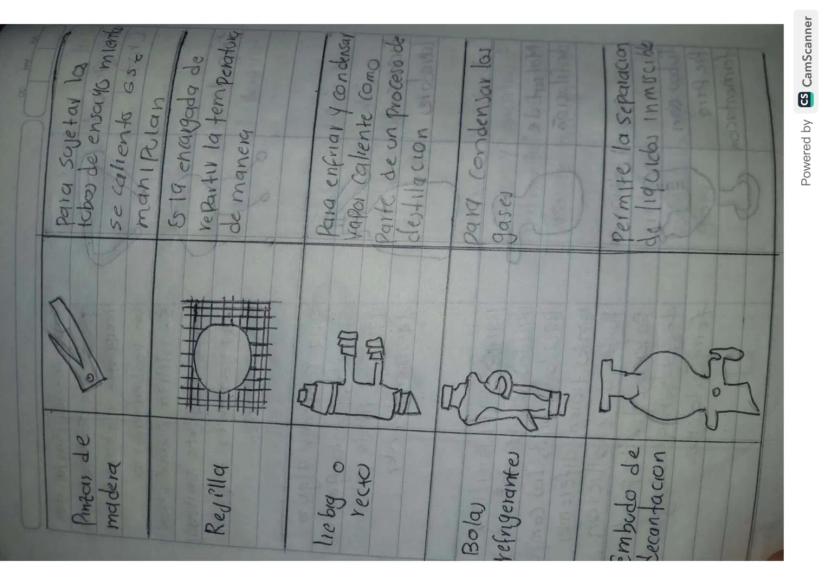 Pinzas de
madera
Para sujetar los
tubos de ensayo mient
se calienta o se
manipulan
Rejilla
Es la encargada de
repartir la temperatura
de manera
liebig o
recto
Para enfriar y condensar
vapor caliente como
parte de un proceso de
destilacion
Bolas
refrigerantes
para condensar los
gases
Embudo de
decantacion
permite la separacion
de liquidos inmiscible
Powered by CS CamScanner